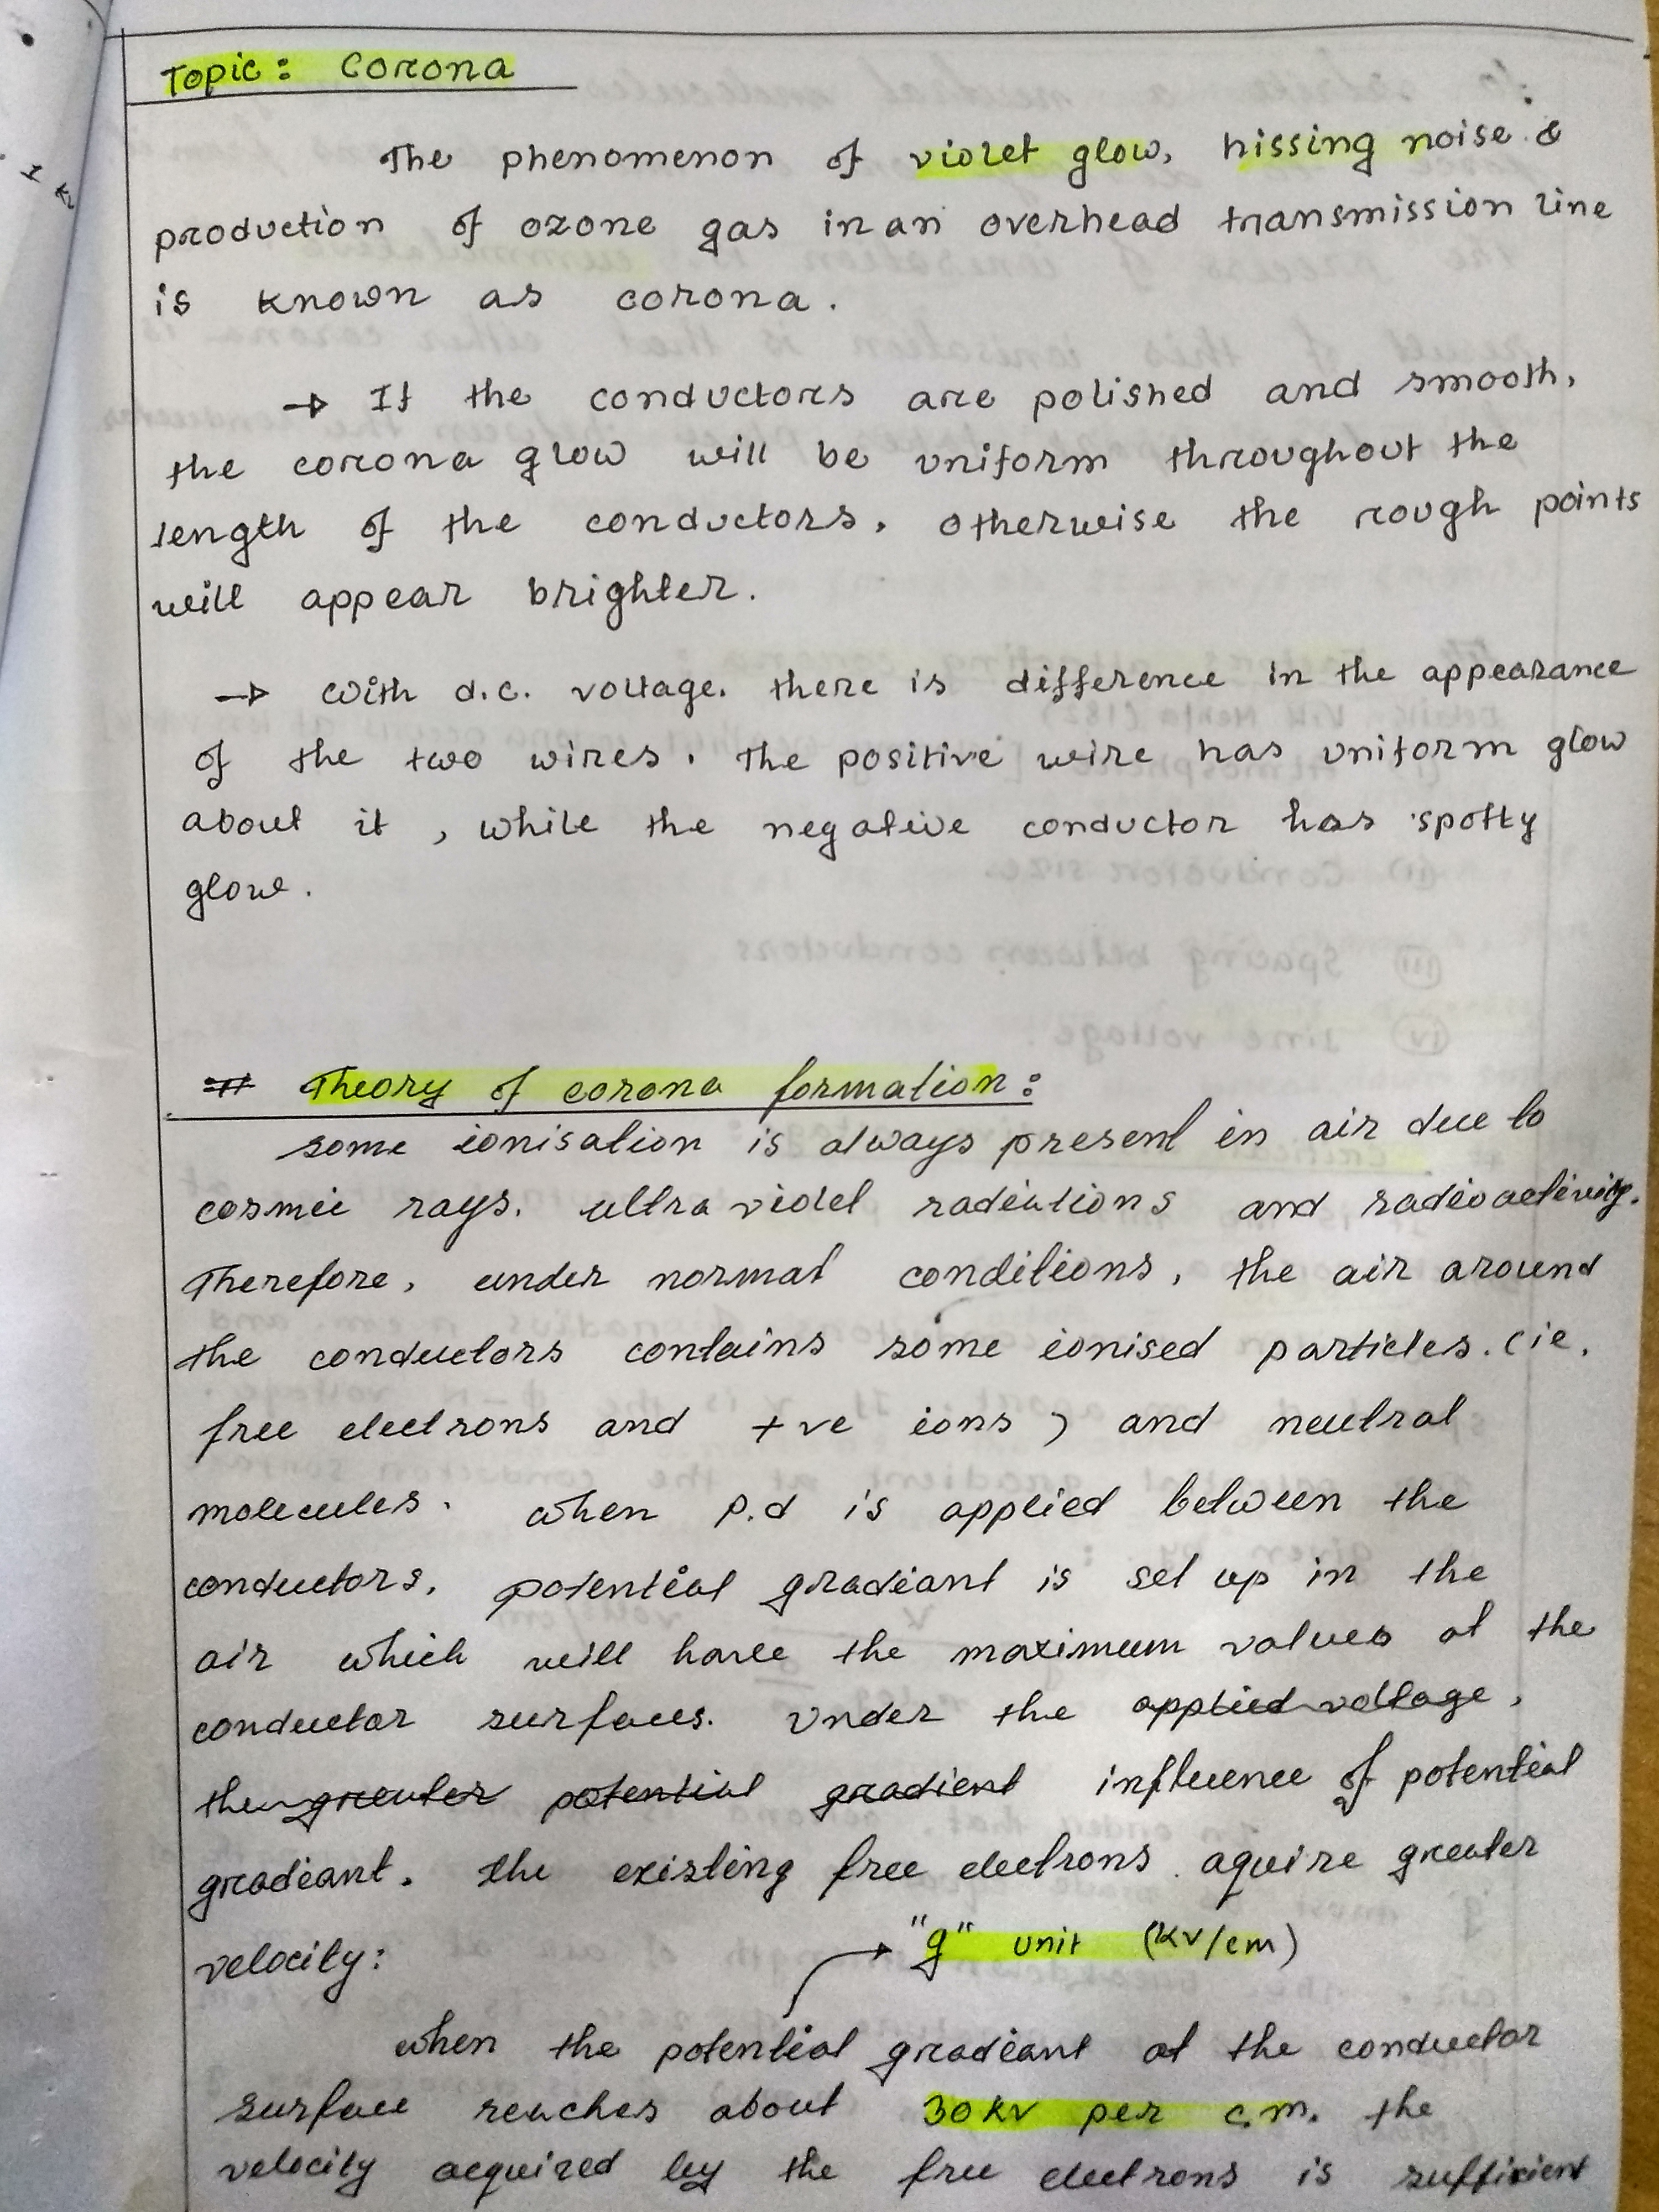 Topic: Corona
The phenomenon of violet glow, hissing noise &
production of ozone gas in an overhead transmission line
is known as corona.
→ If the conductors are polished and smooth,
the corona glow will be uniform throughout the
length of the conductors, otherwise the rough points
will appear brighter.
→ With d.c. voltage, there is difference in the appearance
of the two wires. The positive wire has uniform glow
about it, while the negative conductor has spotty
glow.
# Theory of corona formation:
some ionisation is always present in air due to
cosmic rays, ultra violet radiations and radioactivity.
Therefore, under normal conditions, the air around
the conductors contains some ionised particles. (ie.
free electrons and +ve ions) and neutral
molecules. when p.d is applied between the
conductors, potential gradiant is set up in the
air which will have the maximum values at the
conductor surfaces. Under the applied voltage,
the greater potential gradient influence of potential
gradiant, the existing free electrons aquire greater
velocity:
"g" unit (kv/cm)
when the potential gradiant at the conductor
surface reaches about 30 kv per c.m. the
velocity acquired by the free electrons is sufficient